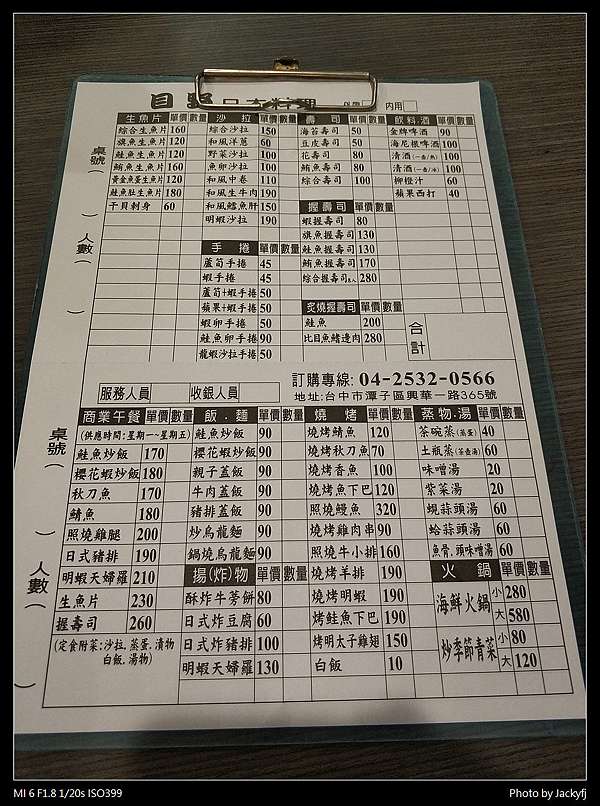 目野日本料理 內用
桌號
人數
生魚片 單價 數量
綜合生魚片 160
旗魚生魚片 120
鮭魚生魚片 120
鮪魚生魚片 160
黃金魚蛋生魚片 120
鮭魚肚生魚片 180
干貝刺身 60
沙拉 單價 數量
綜合沙拉 150
和風洋蔥 60
野菜沙拉 100
魚卵沙拉 100
和風中卷 110
和風生牛肉 190
和風鱈魚肝 150
明蝦沙拉 190
手捲 單價 數量
蘆筍手捲 45
蝦手捲 45
蘆筍+蝦手捲 50
蘋果+蝦手捲 50
蝦卵手捲 50
鮭魚卵手捲 90
龍蝦沙拉手捲 50
壽司 單價 數量
海苔壽司 50
豆皮壽司 50
花壽司 80
鮪魚壽司 80
綜合壽司 100
握壽司 單價 數量
蝦握壽司 80
旗魚握壽司 130
鮭魚握壽司 130
鮪魚握壽司 170
綜合握壽司 280
炙燒握壽司 單價 數量
鮭魚 200
比目魚鰭邊肉 280
飲料.酒 單價 數量
金牌啤酒 90
海尼根啤酒 100
清酒 100
清酒 100
柳橙汁 60
蘋果西打 40
合計
服務人員 收銀人員
訂購專線: 04-2532-0566
地址:台中市潭子區興華一路365號
桌號
人數
商業午餐 單價 數量
(供應時間:星期一~星期五)
鮭魚炒飯 170
櫻花蝦炒飯 180
秋刀魚 170
鯖魚 180
照燒雞腿 200
日式豬排 190
明蝦天婦羅 210
生魚片 230
握壽司 260
(定食附菜:沙拉.蒸蛋.漬物
白飯.湯物)
飯.麵 單價 數量
鮭魚炒飯 90
櫻花蝦炒飯 90
親子蓋飯 90
牛肉蓋飯 90
豬排蓋飯 90
炒烏龍麵 90
鍋燒烏龍麵 90
揚(炸)物 單價 數量
酥炸牛蒡餅 80
日式炸豆腐 60
日式炸豬排 100
明蝦天婦羅 130
燒烤 單價 數量
燒烤鯖魚 120
燒烤秋刀魚 70
燒烤香魚 100
燒烤魚下巴 120
照燒鰻魚 320
燒烤雞肉串 90
照燒牛小排 160
燒烤羊排 190
燒烤明蝦 190
烤鮭魚下巴 190
烤明太子雞翅 150
白飯 10
蒸物.湯 單價 數量
茶碗蒸(蒸蛋) 40
土瓶蒸(茶壺湯) 60
味噌湯 20
紫菜湯 20
蜆蒜頭湯 60
蛤蒜頭湯 60
魚骨.頭味噌湯 60
火鍋 單價 數量
海鮮火鍋 小 280
大 580
炒季節青菜 小 80
大 120
MI 6 F1.8 1/20s ISO399
Photo by Jackyfj